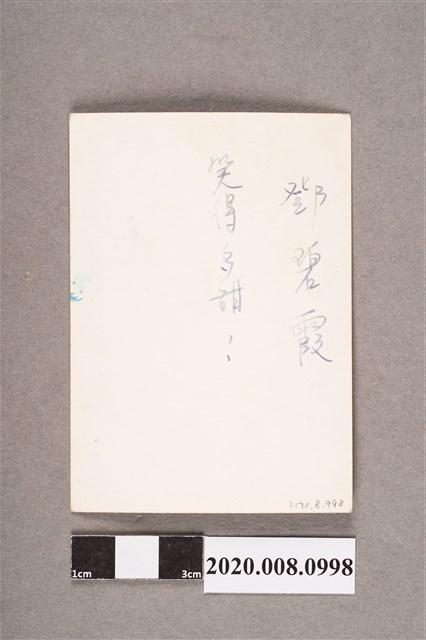 鄧碧霞
笑得多甜！！
2120.8.998
1cm 3cm
2020.008.0998